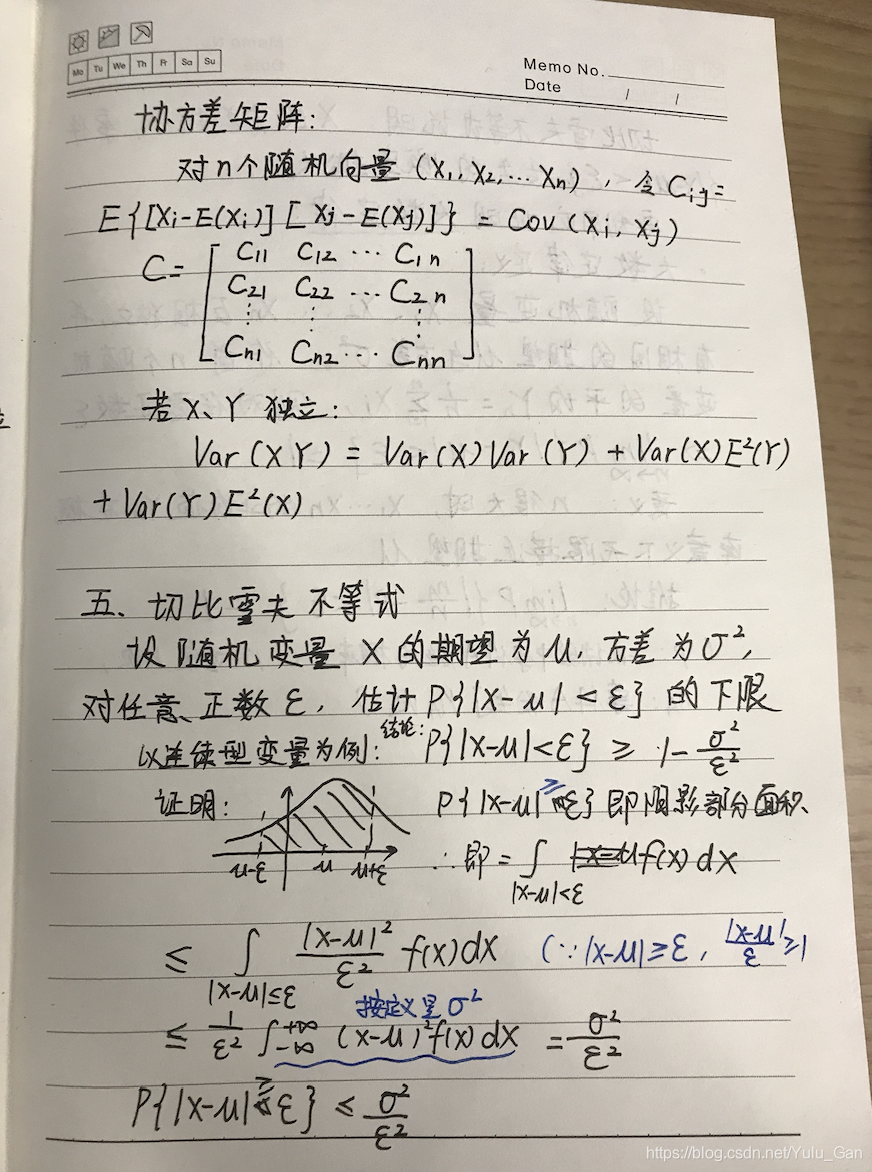 Mo Tu We Th Fr Sa Su
Memo No.
Date / /
协方差矩阵:
对n个随机向量 (X₁, X₂, ... Xn), 令 Cij =
E{[Xi-E(Xi)][Xj-E(Xj)]} = Cov(Xi, Xj)
C = [ C11 C12 ... C1n
C21 C22 ... C2n
⋮ ⋮ ⋮
Cn1 Cn2 ... Cnn ]
若 X、Y 独立:
Var(XY) = Var(X)Var(Y) + Var(X)E²(Y)
+ Var(Y)E²(X)
五、切比雪夫不等式
设随机变量 X 的期望为 μ, 方差为 σ²,
对任意正数 ε, 估计 P{|X-μ|<ε} 的下限
以连续型变量为例: 结论: P{|X-μ|<ε} ≥ 1-σ²/ε²
证明: P{|X-μ|≥ε} 即阴影部分面积
μ-ε μ μ+ε
∴ 即 = ∫|X-μ|<ε f(x)dx
≤ ∫|X-μ|≤ε |X-μ|²/ε² f(x)dx (∵|X-μ|≥ε, |X-μ|/ε≥1
按定义是 σ²
≤ 1/ε² ∫-∞+∞ (x-μ)²f(x)dx = σ²/ε²
P{|X-μ|≥ε} ≤ σ²/ε²
https://blog.csdn.net/Yulu_Gan